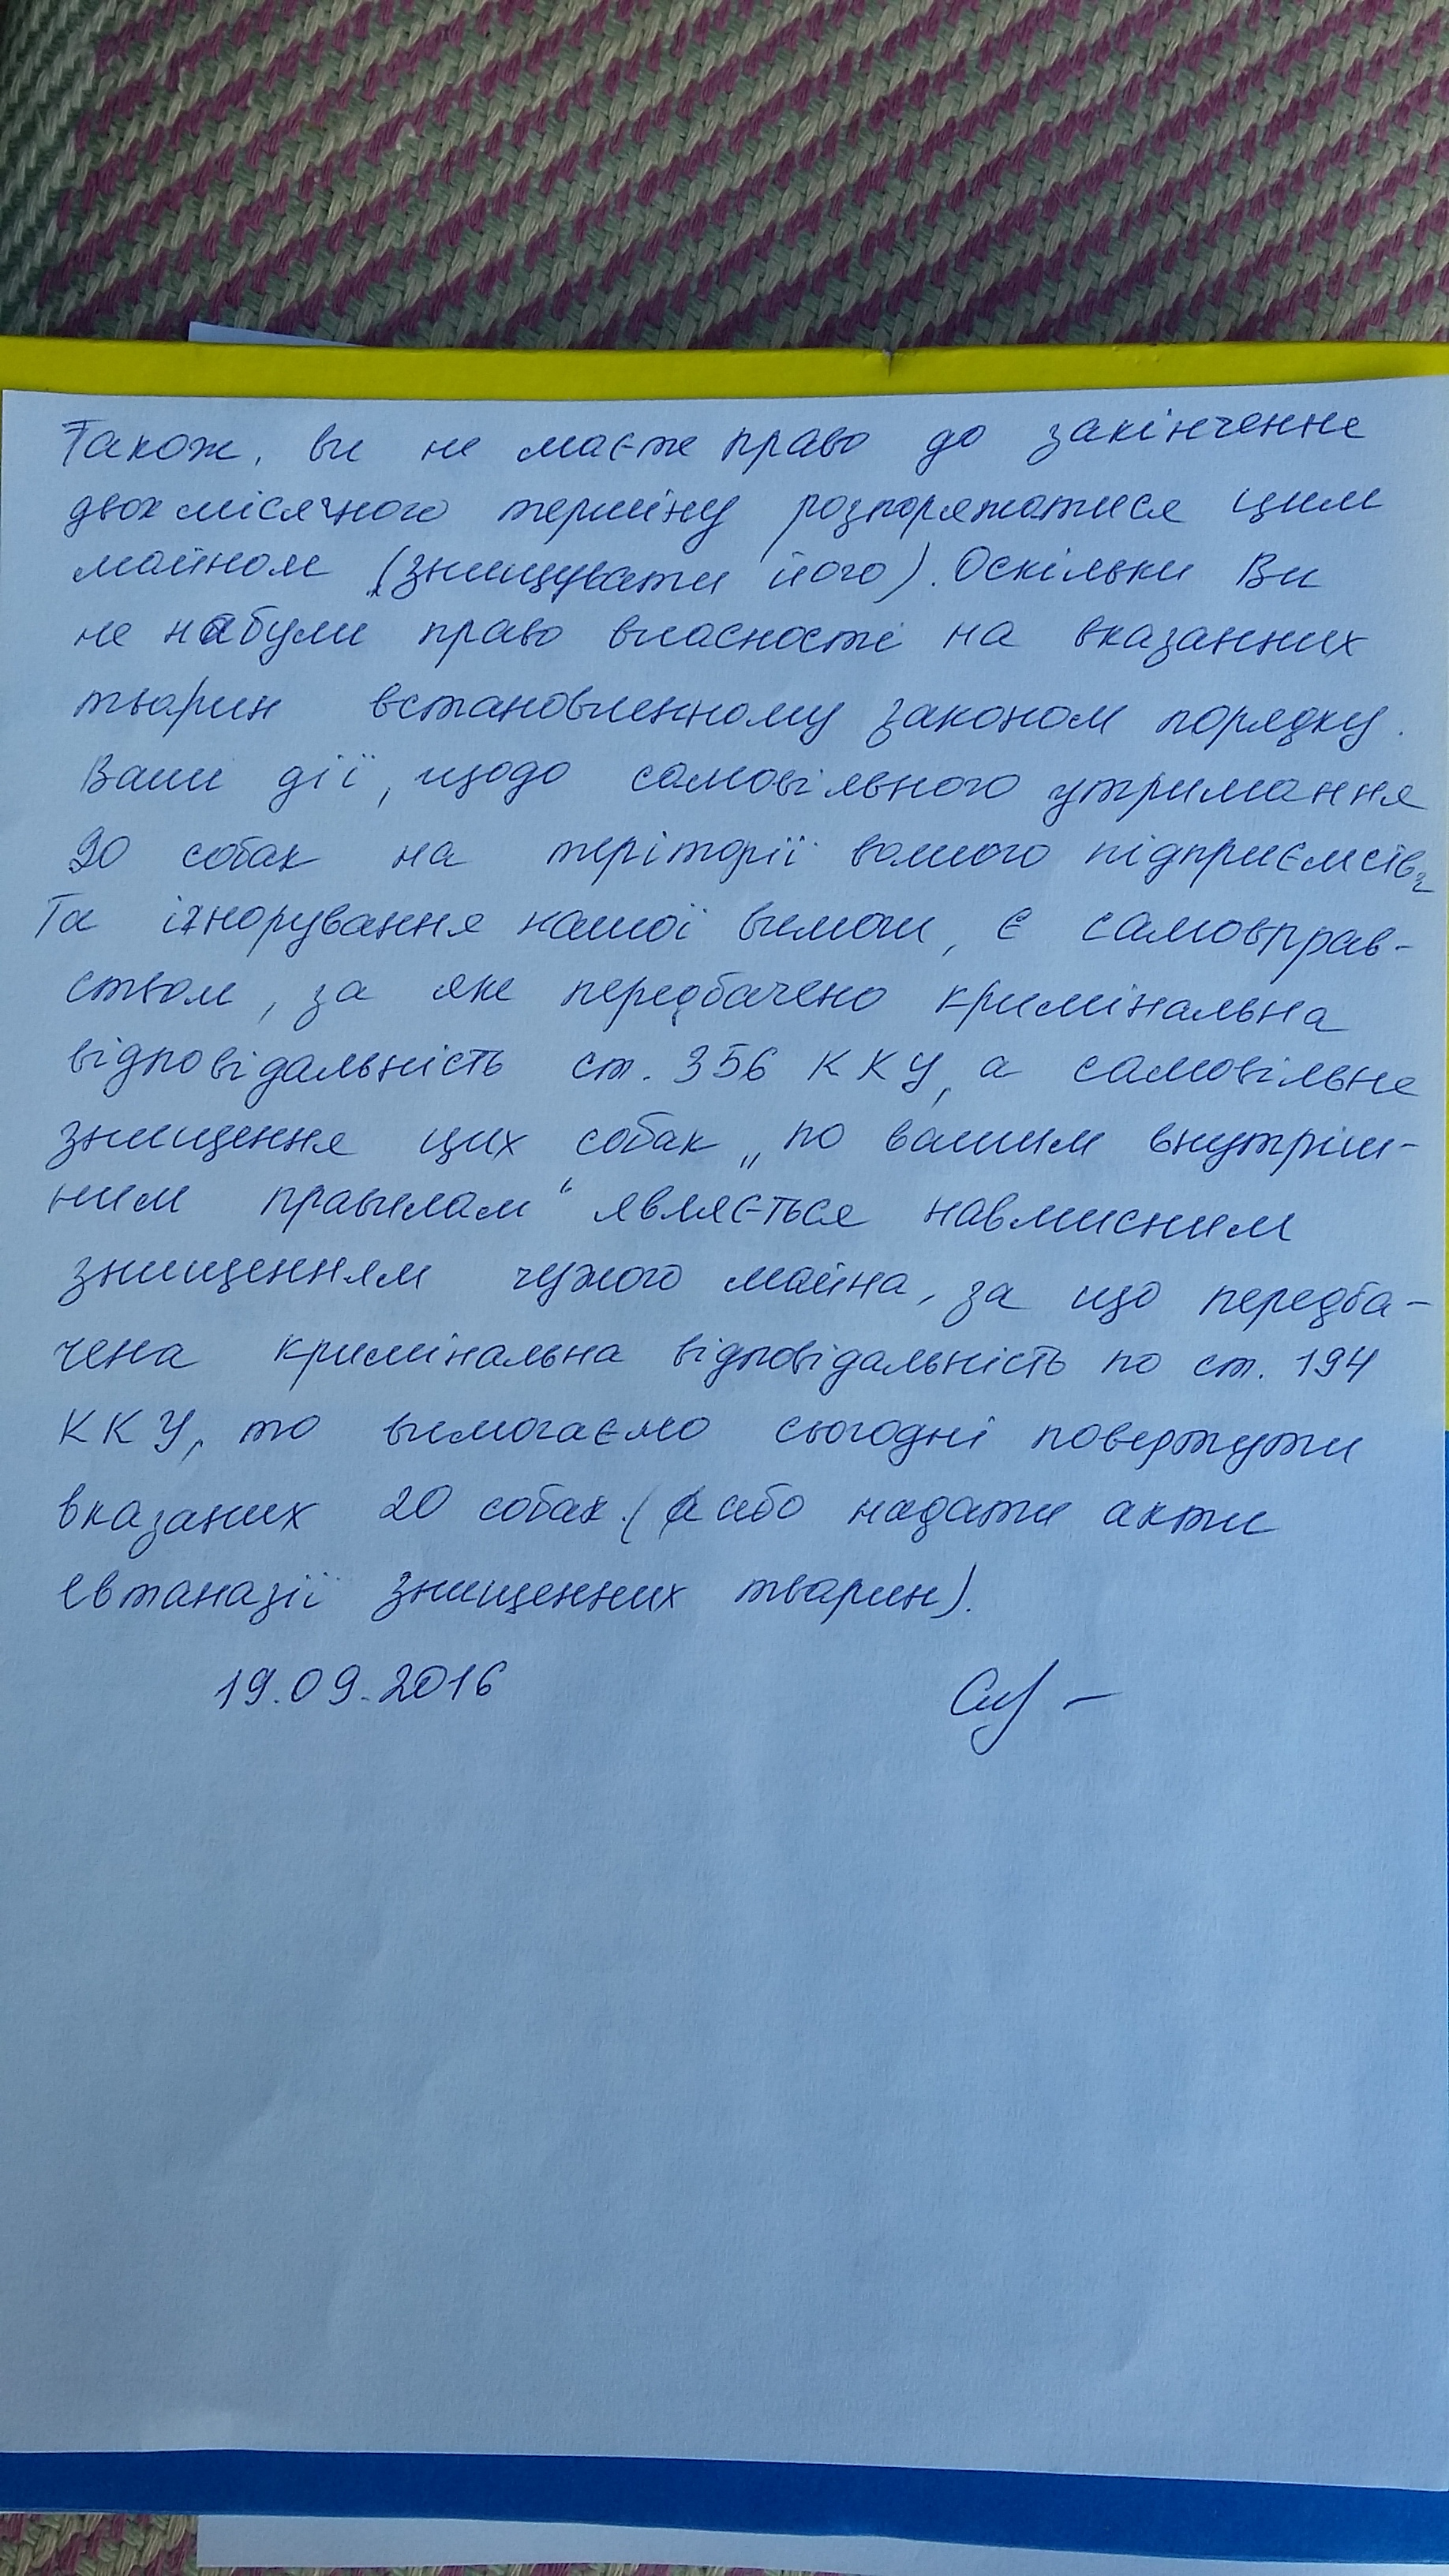 Також, ви не маєте право до закінчення
двохмісячного терміну розпоряжатися цим
майном (знищувати його). Оскільки Ви
не набули право власності на вказанних
тварин встановленному законом порядку.
Ваши дії, щодо самовільного утримання
20 собак на теріторії вашого підприємства
Та ігнорування нашої вимоги, є самоправ-
ством, за яке передбачено кримінальна
відповідальність ст. 356 ККУ, а самовільне
знищення цих собак „по вашим внутріш-
ним правилам“ являється навмисним
знищенням чужого майна, за що передба-
чена кримінальна відповідальність по ст. 194
ККУ, то вимогаємо сьогодні повернути
вказаних 20 собак. (або надати акти
евтаназії знищенних тварин).
19.09.2016